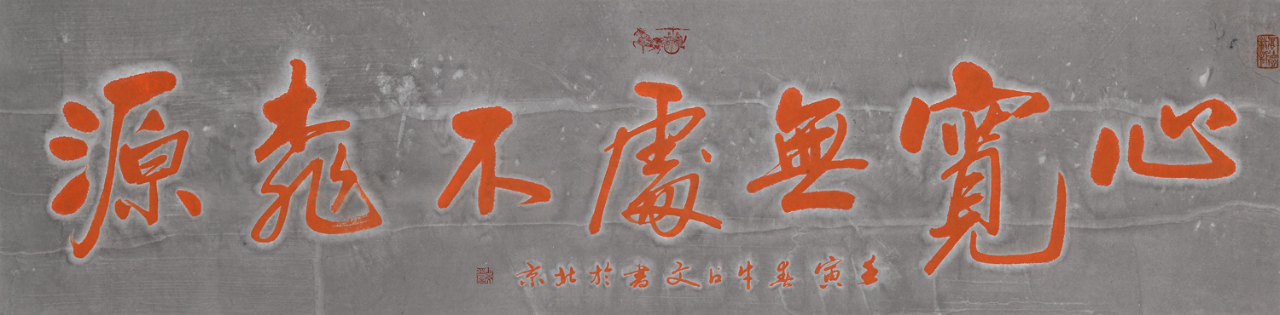 心寬無處不桃源
壬寅春牛文書於北京